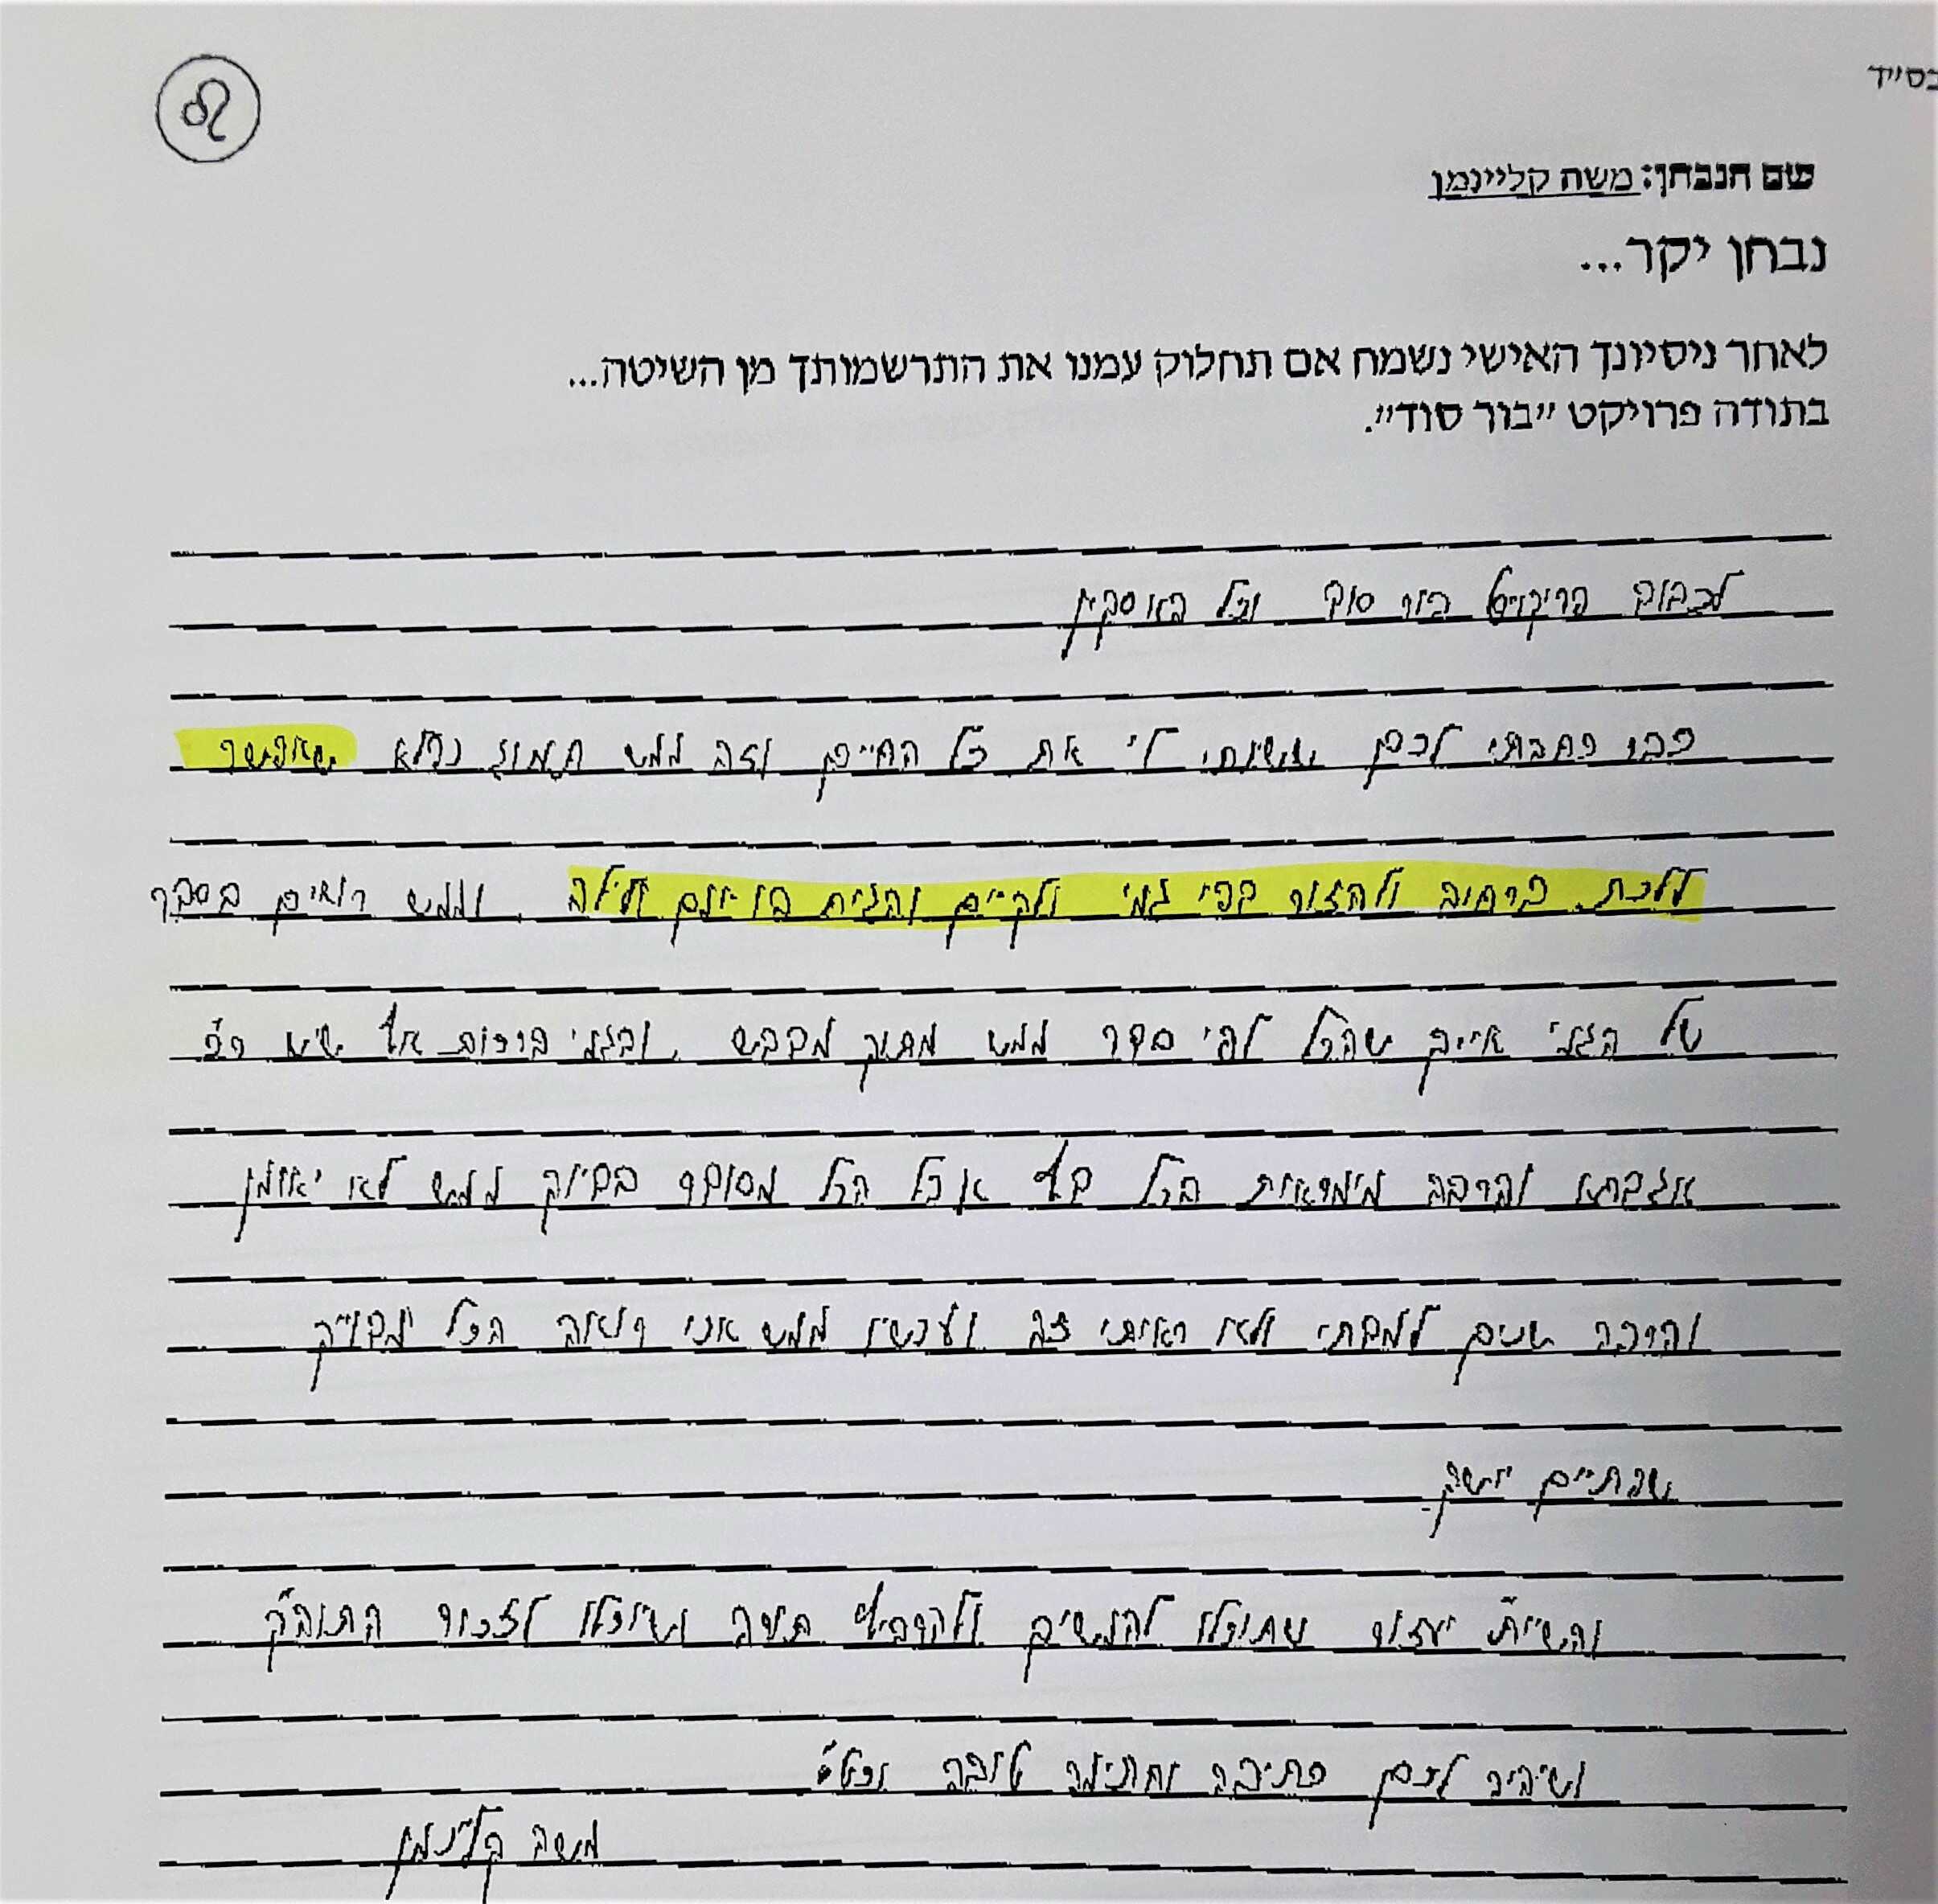 בס״ד
שם הנבחן: משה קליינמן
נבחן יקר...
לאחר ניסיונך האישי נשמח אם תחלוק עמנו את התרשמותך מן השיטה...
בתודה פרויקט ״בור סוד״.
לכבוד פרויקט בור סוד וכל העוסקין
כבר כתבתי לכם ששינתי לי את כל החיים וזה ממש תמוז נפלא שאפשר
ללכת ברחוב ולחזור כפי גמ׳ ולקיים והגית בו יומם ולילה. וממש רואים בסדר
של הגמ׳ איך שהכל לפי סדר ממש מתוק מדבש. ובגמ׳ ברכות אף שיש
אגדתא והרבה מימראות בכל דף אבל הכל מסודר בדיוק ממש לא יאומן
והרבה שנים למדתי ולא ראיתי זה ועכשיו ממש אני רואה הכל מדוייק
והשי״ת יעזור שתוכלו להמשיך ולהרביץ תורה ושיוכלו לזכור התוה״ק
ושיהיה לכם כתיבה וחתימה טובה
משה קליינמן